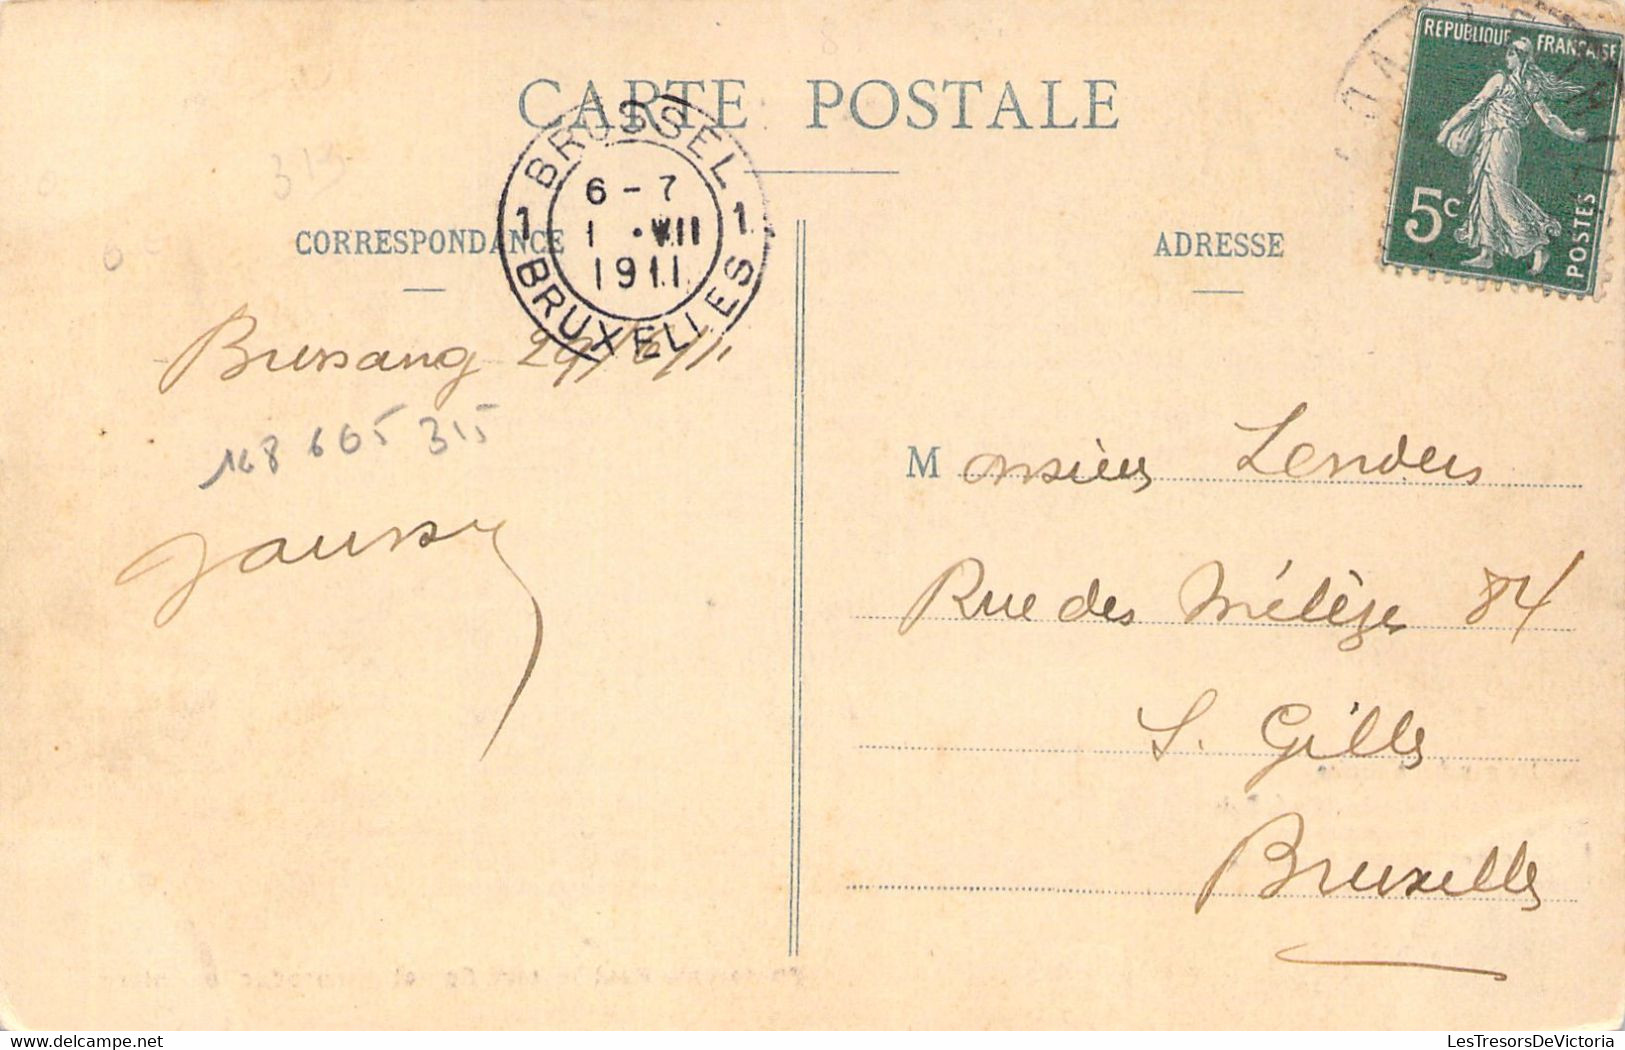 CARTE POSTALE
REPUBLIQUE FRANÇAISE
5c
POSTES
BRUSSEL
6 - 7
1 1 VII 1
1911
BRUXELLES
CORRESPONDANCE
ADRESSE
Bussang 29/6/11
168 605 315
315
Monsieur Lenders
Rue des Mélèzes 84
S. Gilles
Bruxelles
LesTresorsDeVictoria
www.delcampe.net
LesTresorsDeVictoria